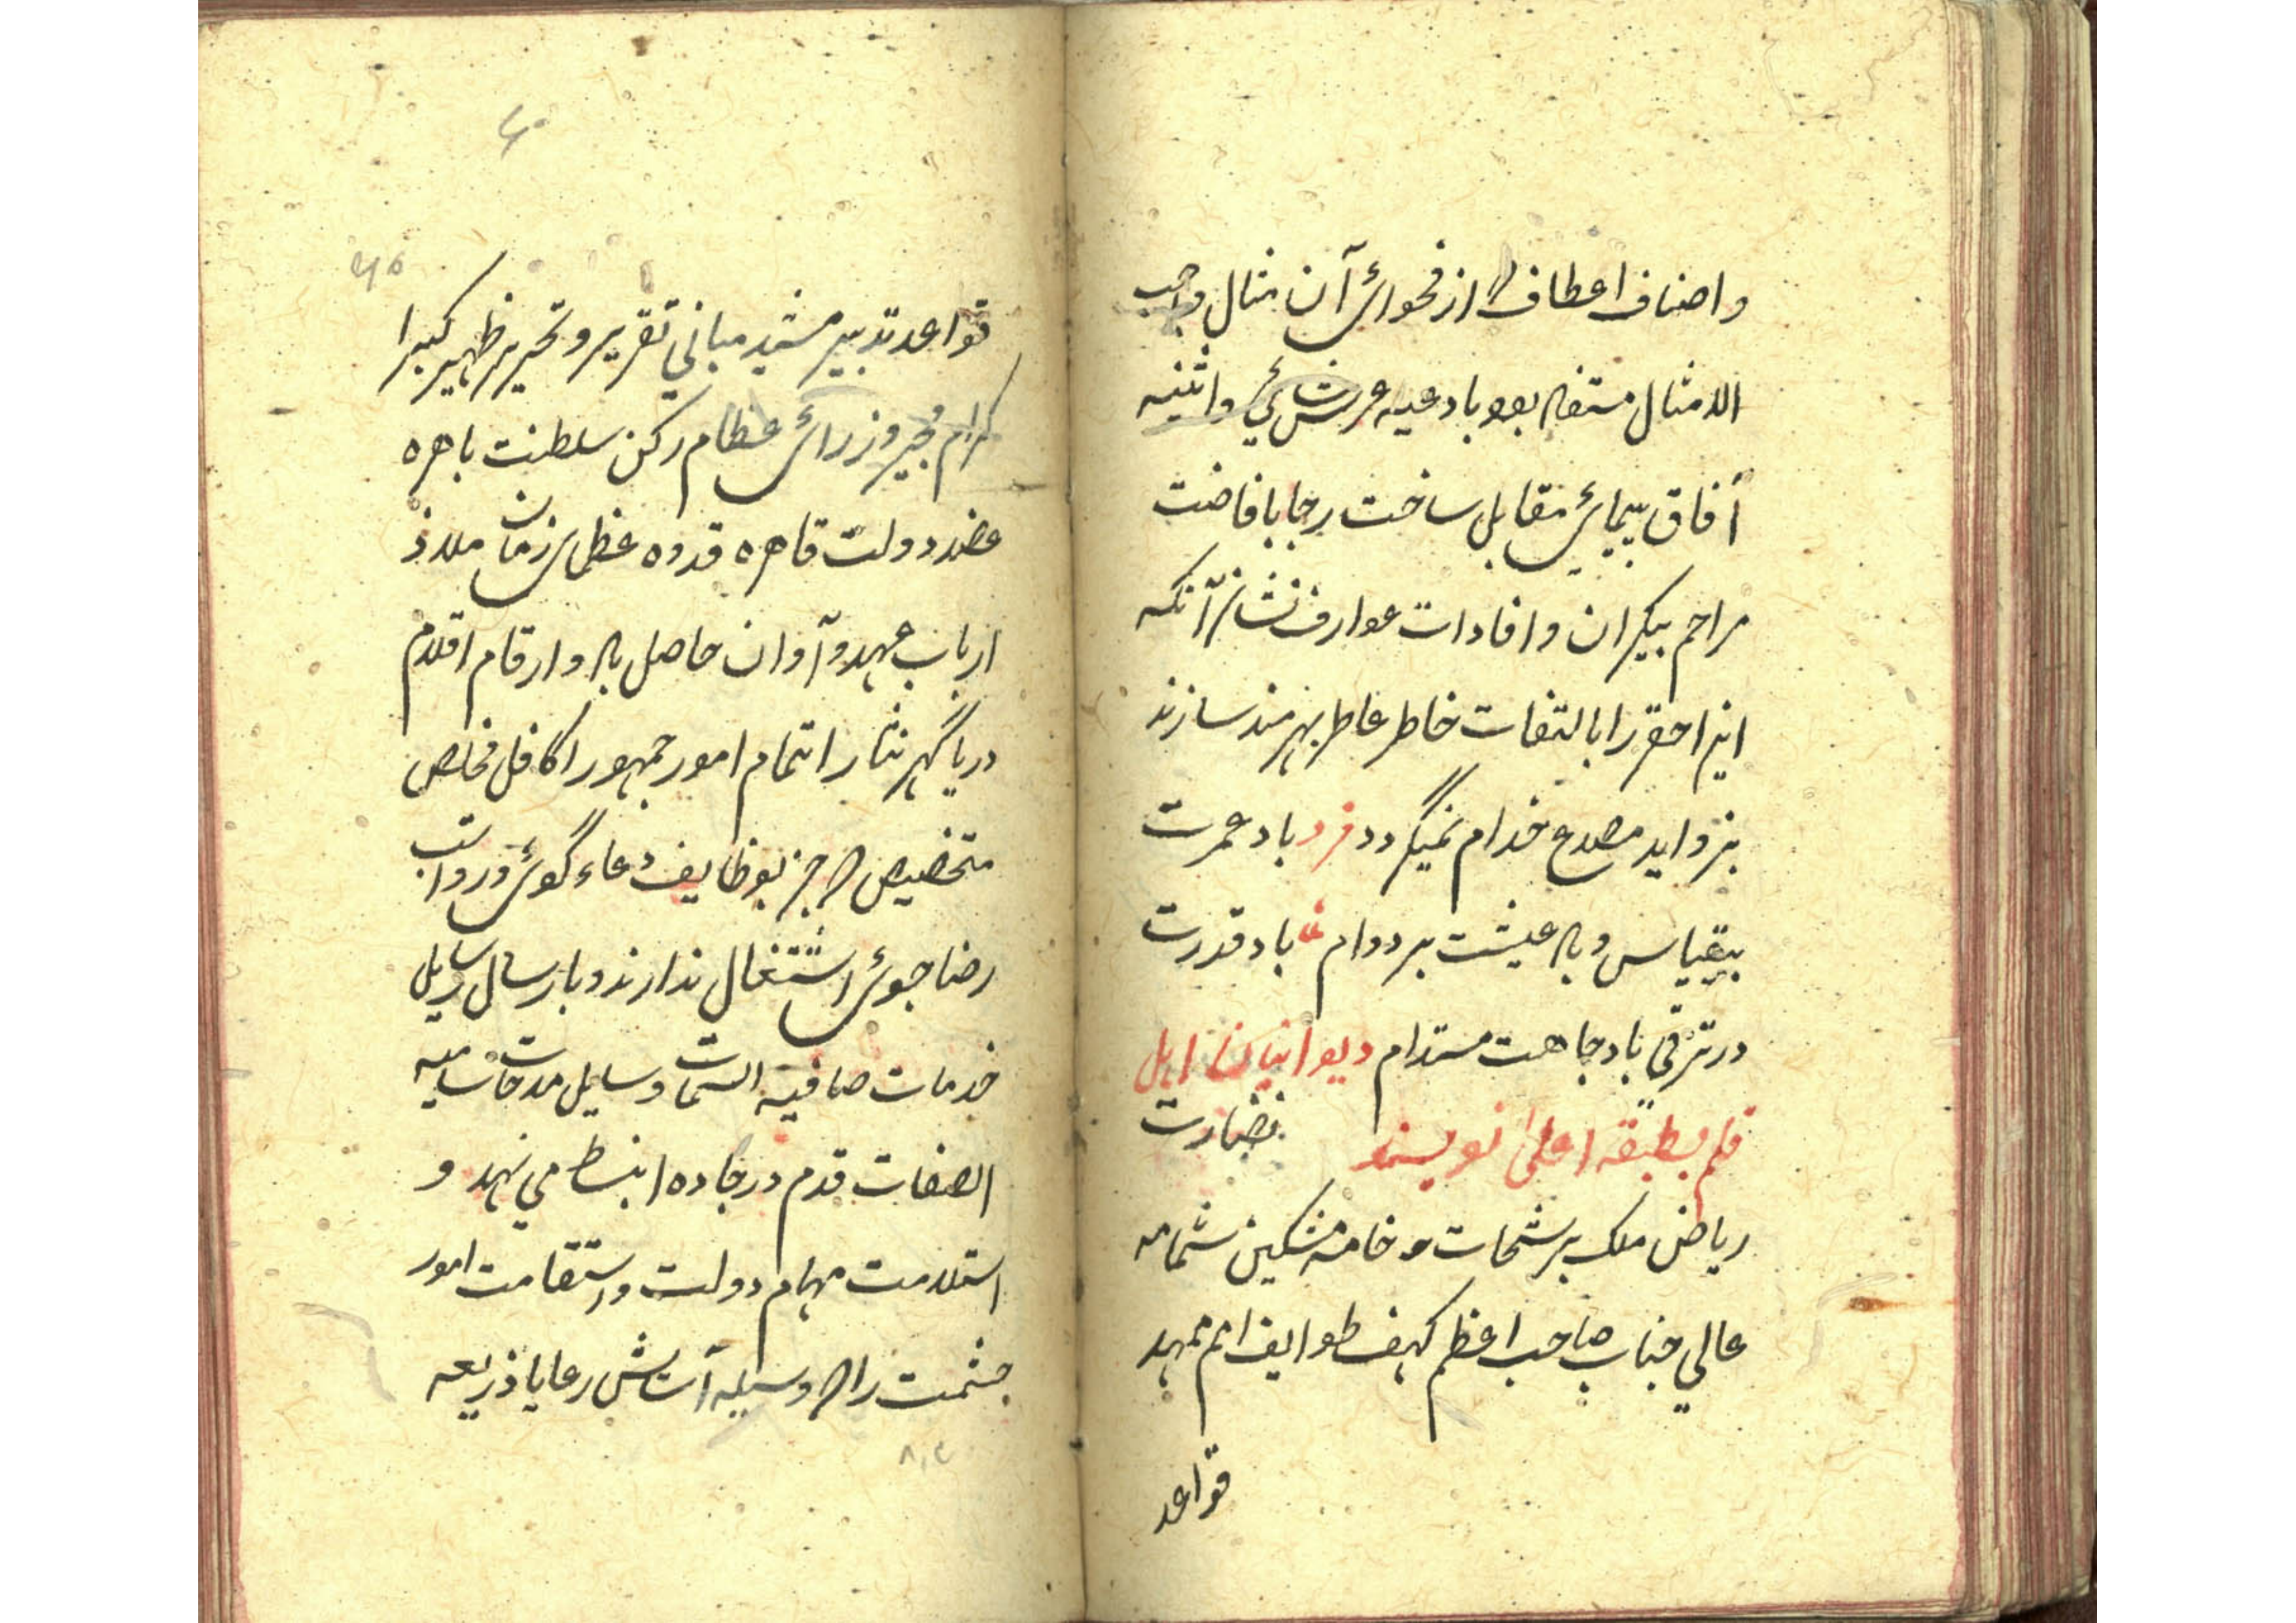 واصناف اعطاف از فحوائ آن مثال واجب
الامثال مستفاد بود بادعیه عرش سائي واثنیه
آفاق پیمائ مقابل ساخت رجا بافاضت
مراحم بیکران وافادات عوارف نشان آنکه
این احقر را بالتفات خاطر عاطر بهرمند سازند
بزواید مصدع خدام نمیگردد فرد باد عمرت
بیقیاس وباد عیشت بر دوام باد قدرت
در ترقي باد جاهت مستدام دیوانیان اهل
قلم بطبقه اعلی نویسند نضارت
ریاض ملک برشحات خامه مشکین شمامه
عالي جناب صاحب اعظم کهف طوایف امم ممهد
قواعد
۶۰
۶۵
قواعد تدبیر مشید مباني تقریر وتحریر ظهیر کبرا
کرام مجیر وزرائ عظام رکن سلطنت باهره
عضد دولت قاهره قدوه عظمائ زمان ملاذ
ارباب عهد وآوان حاصل باد وارقام اقلام
دریا گهر نثار اتمام امور جمهور را کافل مخلص
متخصیص جز بوظایف دعاء گوئ ورواتب
رضا جوئ اشتغال ندارند وبارسال رسایل
خدمات صافیه السمات وسایل مدحات سامیه
الصفات قدم در جاده انبسط مي نهد و
استلامت مهام دولت واستقامت امور
حشمت را وسیله آسایش رعایا ذریعه